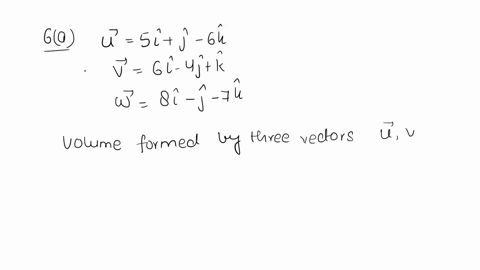 6(a) u⃗ = 5î + ĵ - 6k̂
v⃗ = 6î - 4ĵ + k̂
w⃗ = 8î - ĵ - 7k̂
Volume formed by three vectors u⃗, v